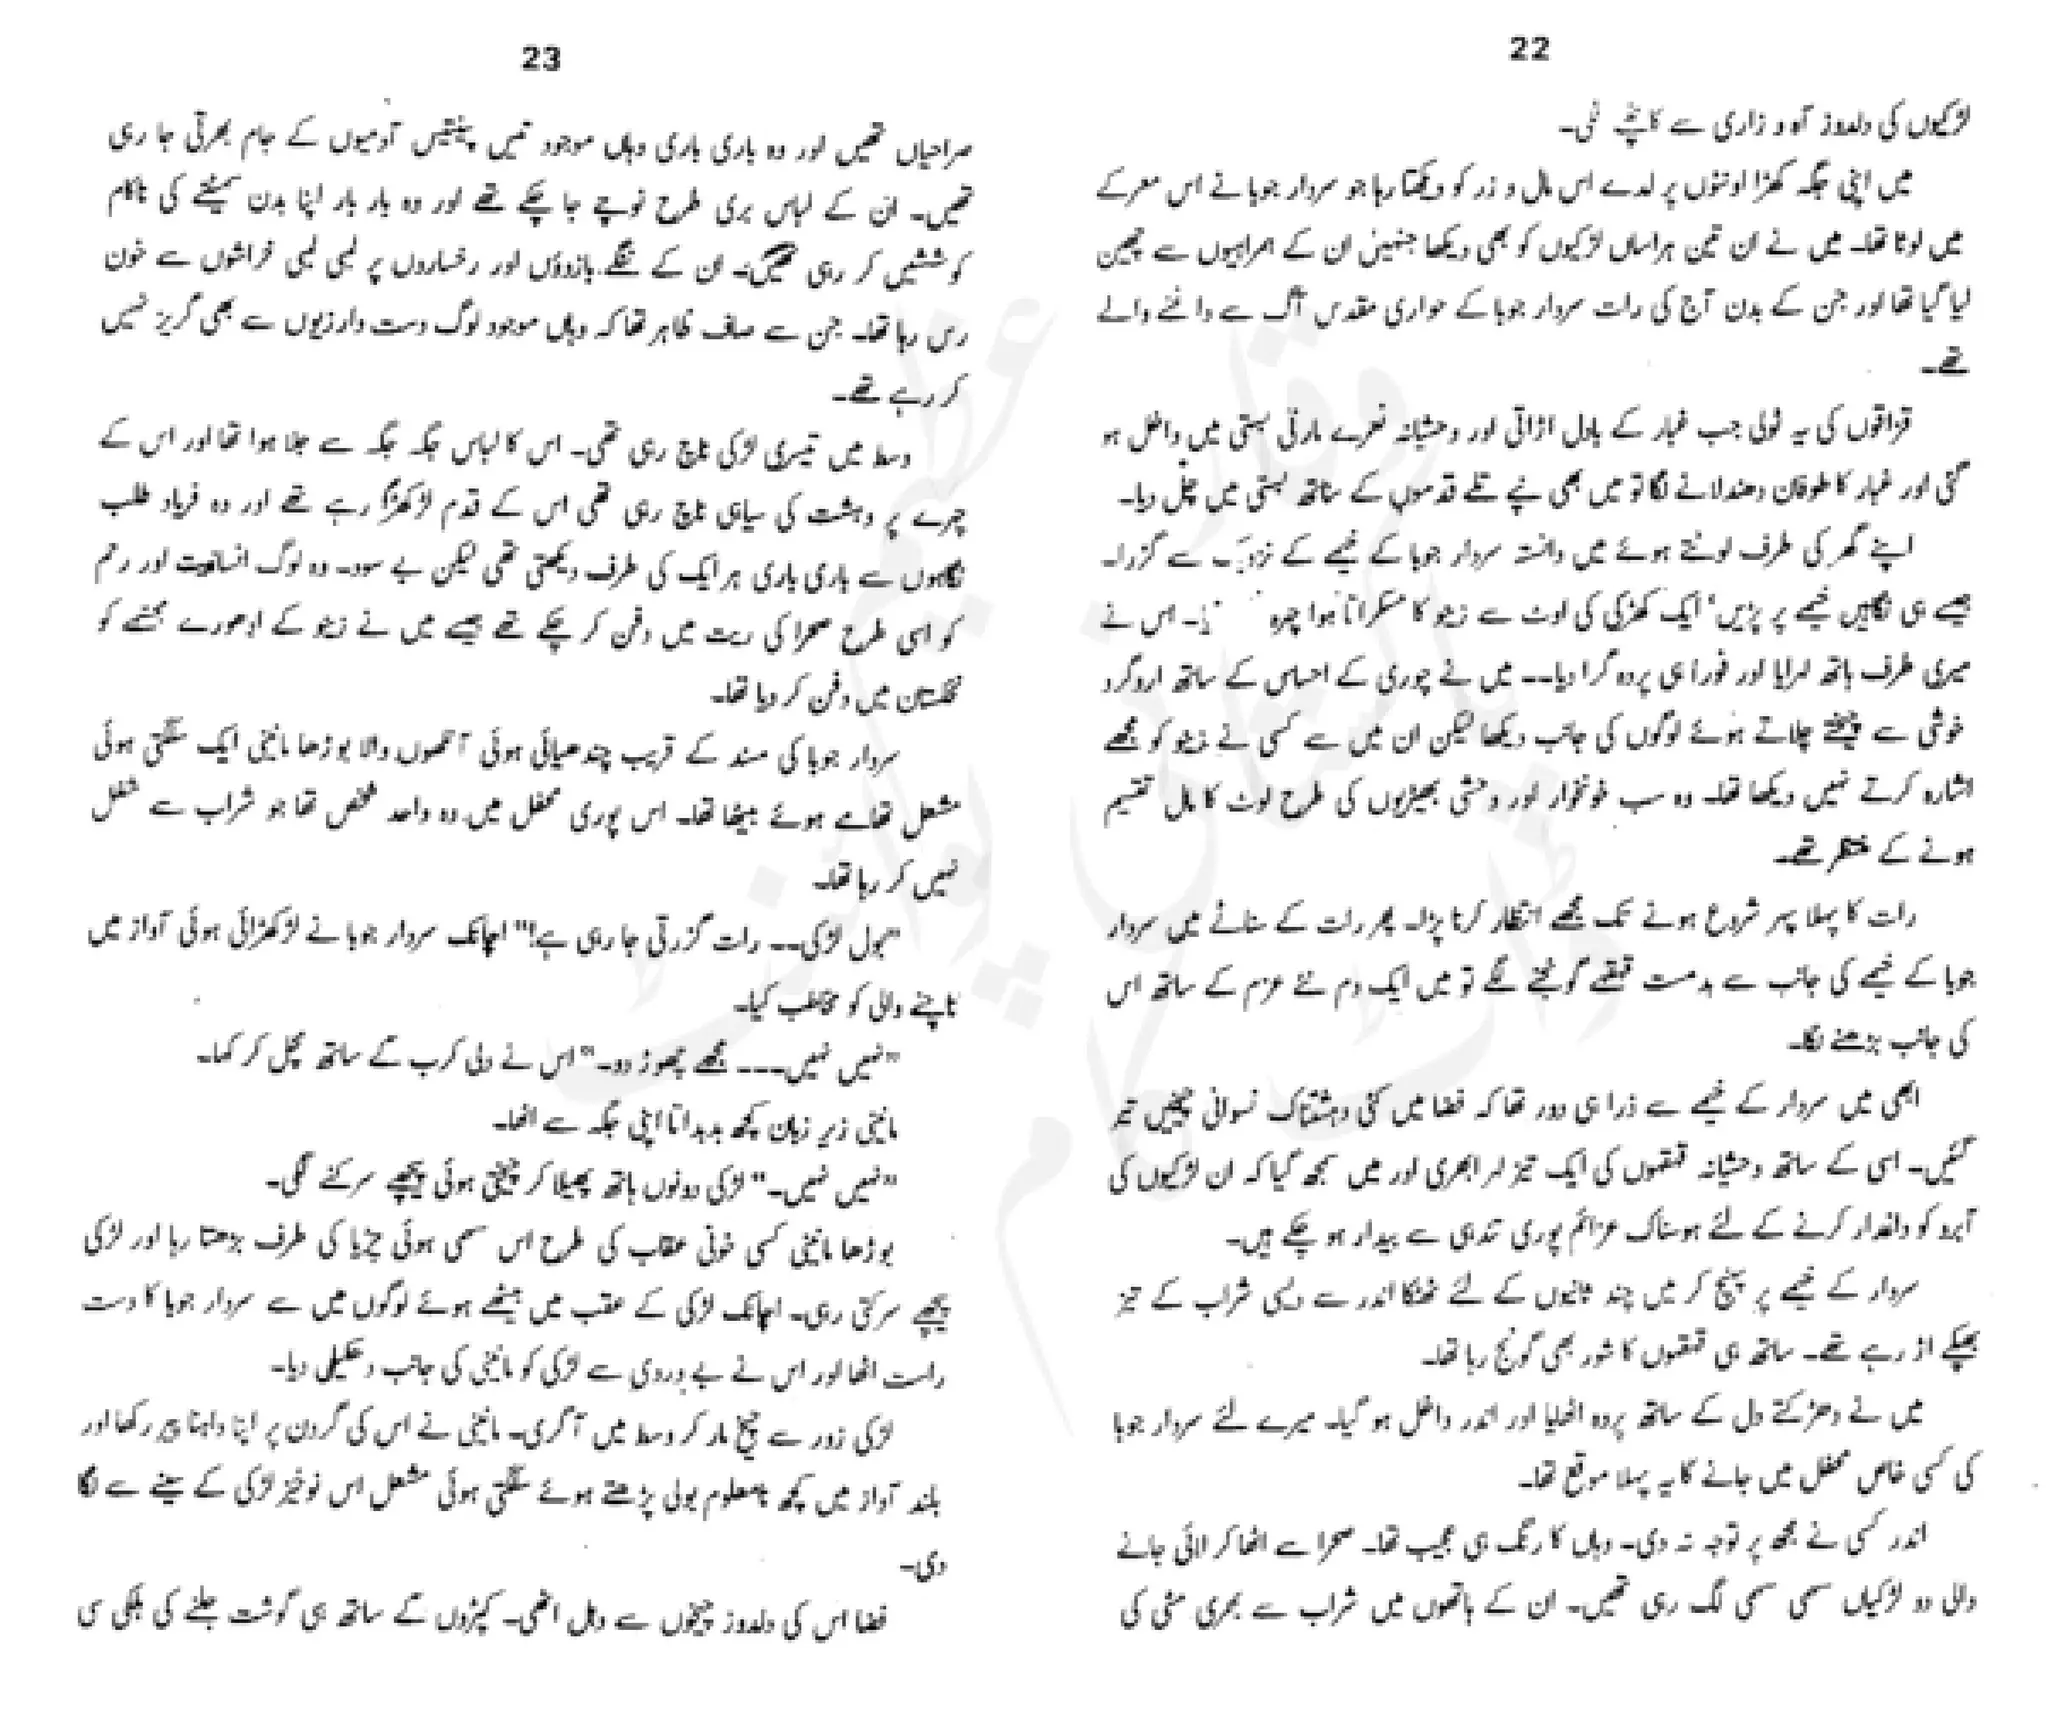 22
لڑکیوں کی دلدوز آہ و زاری سے کانپنے
میں اپنی جگہ کھڑا اونٹوں پر لدے اس مال و زر کو دیکھتا رہا جو سردار جوبا نے اس معرکے
میں لوٹا تھا۔ میں نے ان تین ہراساں لڑکیوں کو بھی دیکھا جنہیں ان کے ہمراہیوں سے چھین
لیا گیا تھا اور جن کے بدن آج کی رات سردار جوبا کے حواری مقدس آگ سے داغنے والے
تھے۔
قزاقوں کی یہ ٹولی جب غبار کے بادل اڑاتی اور وحشیانہ نعرے مارتی بستی میں داخل ہو
گئی اور غبار کا طوفان دھندلانے لگا تو میں بھی نپے تلے قدموں کے ساتھ بستی میں چل دیا۔
اپنے گھر کی طرف لوٹتے ہوئے میں دانستہ سردار جوبا کے خیمے کے نزدیک سے گزرا۔
جیسے ہی نگاہیں خیمے پر پڑیں' ایک کھڑکی کی اوٹ سے زینو کا مسکراتا ہوا چہرہ اس نے
میری طرف ہاتھ لہرایا اور فوراً ہی پردہ گرا دیا۔۔ میں نے چوری کے احساس کے ساتھ اردگرد
خوشی سے چیختے چلاتے ہوئے لوگوں کی جانب دیکھا لیکن ان میں سے کسی نے زینو کو مجھے
اشارہ کرتے نہیں دیکھا تھا۔ وہ سب خونخوار اور وحشی بھیڑیوں کی طرح لوٹ کا مال تقسیم
ہونے کے منتظر تھے۔
رات کا پہلا پہر شروع ہونے تک مجھے انتظار کرنا پڑا۔ پھر رات کے سناٹے میں سردار
جوبا کے خیمے کی جانب سے بدمست قہقہے گونجنے لگے تو میں ایک دم نئے عزم کے ساتھ اس
کی جانب بڑھنے لگا۔
ابھی میں سردار کے خیمے سے ذرا ہی دور تھا کہ فضا میں کئی دہشتناک نسوانی چیخیں تیر
گئیں۔ اسی کے ساتھ وحشیانہ قہقہوں کی ایک تیز لہر ابھری اور میں سمجھ گیا کہ ان لڑکیوں کی
آبرو کو داغدار کرنے کے لئے ہوسناک عزائم پوری تندہی سے بیدار ہو چکے ہیں۔
سردار کے خیمے پر پہنچ کر میں چند ثانیوں کے لئے ٹھٹکا اندر سے دیسی شراب کے تیز
بھپکے اڑ رہے تھے۔ ساتھ ہی قہقہوں کا شور بھی گونج رہا تھا۔
میں نے دھڑکتے دل کے ساتھ پردہ اٹھایا اور اندر داخل ہو گیا۔ میرے لئے سردار جوبا
کی کسی خاص محفل میں جانے کا یہ پہلا موقع تھا۔
اندر کسی نے مجھ پر توجہ نہ دی۔ وہاں کا رنگ ہی عجیب تھا۔ صحرا سے اٹھا کر لائی جانے
والی دو لڑکیاں سہمی سہمی لگ رہی تھیں۔ ان کے ہاتھوں میں شراب سے بھری مٹی کی
23
صراحیاں تھیں اور وہ باری باری وہاں موجود تیس پینتیس آدمیوں کے جام بھرتی جا رہی
تھیں۔ ان کے لباس بری طرح نوچے جا چکے تھے اور وہ بار بار اپنا بدن سمیٹنے کی ناکام
کوششیں کر رہی تھیں۔ ان کے ننگے بازوؤں اور رخساروں پر لمبی لمبی خراشوں سے خون
رس رہا تھا۔ جن سے صاف ظاہر تھا کہ وہاں موجود لوگ دست درازیوں سے بھی گریز نہیں
کر رہے تھے۔
وسط میں تیسری لڑکی ناچ رہی تھی۔ اس کا لباس جگہ جگہ سے جلا ہوا تھا اور اس کے
چہرے پر دہشت کی سیاہی ناچ رہی تھی اس کے قدم لڑکھڑا رہے تھے اور وہ فریاد طلب
نگاہوں سے باری باری ہر ایک کی طرف دیکھتی تھی لیکن بے سود۔ وہ لوگ انسانیت اور رحم
کو اسی طرح صحرا کی ریت میں دفن کر چکے تھے جیسے میں نے زینو کے ادھورے مجسمے کو
نخلستان میں دفن کر دیا تھا۔
سردار جوبا کی مسند کے قریب چندھیائی ہوئی آنکھوں والا بوڑھا مانینی ایک سلگتی ہوئی
مشعل تھامے ہوئے بیٹھا تھا۔ اس پوری محفل میں وہ واحد شخص تھا جو شراب سے شغل
نہیں کر رہا تھا۔
"بول لڑکی۔۔ رات گزرتی جا رہی ہے!" اچانک سردار جوبا نے لڑکھڑائی ہوئی آواز میں
ناچنے والی کو مخاطب کیا۔
"نہیں نہیں۔۔۔ مجھے چھوڑ دو۔" اس نے دلی کرب کے ساتھ مچل کر کہا۔
مانینی زیر زبان کچھ بدبداتا اپنی جگہ سے اٹھا۔
"نہیں نہیں۔" لڑکی دونوں ہاتھ پھیلا کر چیختی ہوئی پیچھے سرکنے لگی۔
بوڑھا مانینی کسی خونی عقاب کی طرح اس سہمی ہوئی چڑیا کی طرف بڑھتا رہا اور لڑکی
پیچھے سرکتی رہی۔ اچانک لڑکی کے عقب میں بیٹھے ہوئے لوگوں میں سے سردار جوبا کا دست
راست اٹھا اور اس نے بے دردی سے لڑکی کو مانینی کی جانب دھکیل دیا۔
لڑکی زور سے چیخ مار کر وسط میں آ گری۔ مانینی نے اس کی گردن پر اپنا داہنا پیر رکھا اور
بلند آواز میں کچھ نامعلوم بولی پڑھتے ہوئے سلگتی ہوئی مشعل اس نوخیز لڑکی کے سینے سے لگا
دی۔
فضا اس کی دلدوز چیخوں سے دہل اٹھی۔ کپڑوں کے ساتھ ہی گوشت جلنے کی ہلکی سی